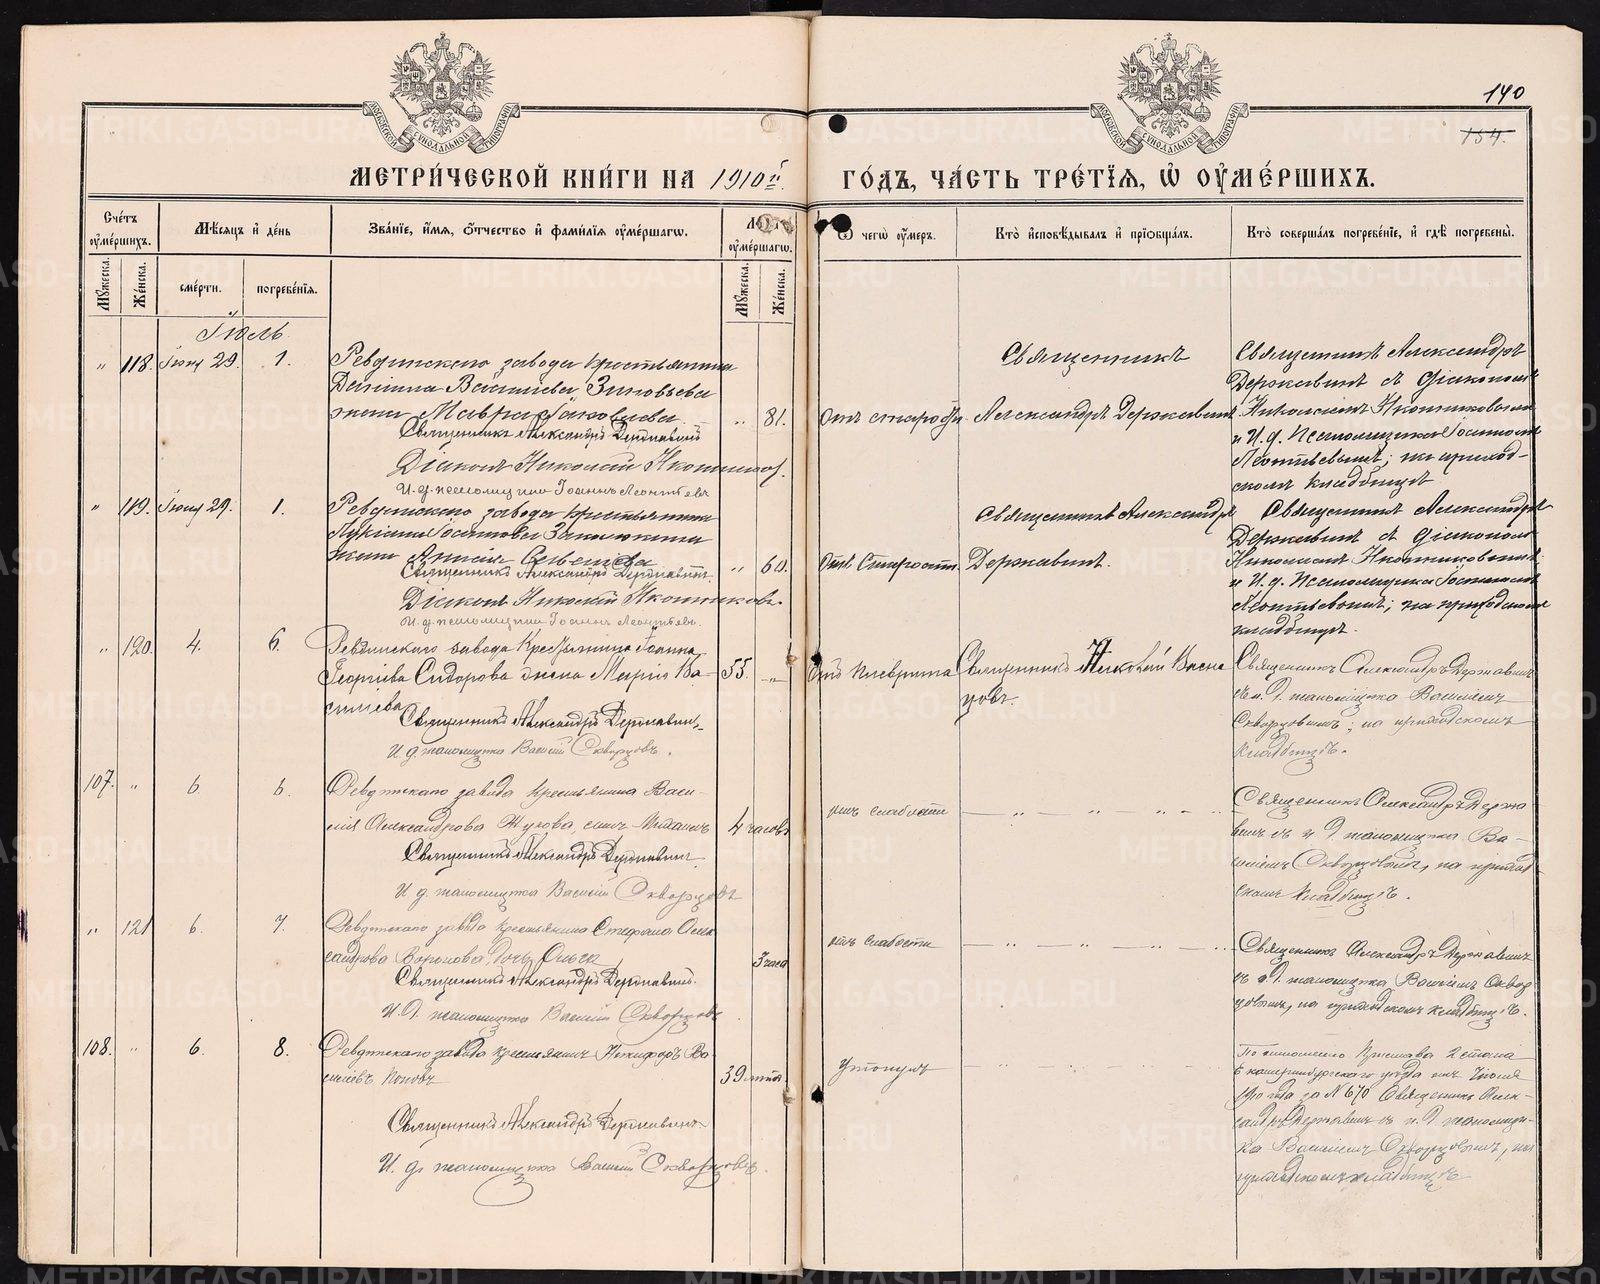 140
154.
МЕТРИ́ЧЕСКОЙ КНИ́ГИ НА 1910й
ГО́ДЪ, ЧА́СТЬ ТРЕ́ТІѦ, Ѡ ОУМЕ́РШИХЪ.
Сче́тъ оумє́ршихъ.
Мѣ́сяцъ и де́нь
Зва́нїе, и́мя, о́тчество и фами́лїя оуме́ршагѡ.
Лѣта оуме́ршагѡ.
Ѿ чегѡ оу́меръ.
Кто̀ исповѣ́дывалъ и прїѡбща́лъ.
Кто̀ соверша́лъ погребе́нїе, и гдѣ̀ погребены̀.
Му́жеска.
Же́нска.
сме́рти.
погребе́нїя.
Му́жеска.
Же́нска.
Іюль
" 118. Іюня 29. 1. Ревдинскаго завода крестьянина
Даніила Васильева Зиновьева
жена Мавра Яковлева " 81. отъ старости
Священникъ Александръ Державинъ
Діаконъ Николай Иконниковъ
И. д. псаломщика Іоаннъ Леонтьевъ
Священникъ
Александръ Державинъ
Священникъ Александръ
Державинъ съ діакономъ
Николаемъ Иконниковымъ
и И. д. псаломщика Іоанномъ
Леонтьевымъ; на приход-
скомъ кладбищѣ
" 119. Іюня 29. 1. Ревдинскаго завода крестьянина
жена 60. Отъ старости
Священникъ Александръ Державинъ
Діаконъ Николай Иконниковъ
И. д. псаломщика Іоаннъ Леонтьевъ.
Священникъ Александръ
Державинъ.
Священникъ Александръ
Державинъ съ діакономъ
Николаемъ Иконниковымъ
и И. д. псаломщика Іоанномъ
Леонтьевымъ; на приходскомъ
кладбищѣ.
" 120. 4. 6. Ревдинскаго завода крестьянина Іоанна
Георгіева Сидорова жена Марія Ва-
сильева 55. "
Священникъ Александръ Державинъ
И д псаломщика Василій Скворцовъ.
Священникъ
Священникъ Александръ Державинъ
съ и. д. псаломщика Василіемъ
Скворцовымъ; на приходскомъ
кладбищѣ.
107. " 6. 6. Ревдинскаго завода крестьянина Васи-
лія Александрова Жукова сынъ 4 часовъ
Священникъ Александръ Державинъ
И. д. псаломщика Василій Скворцовъ
отъ слабости
Священникъ Александръ Держа-
винъ съ и д псаломщика Ва-
силіемъ Скворцовымъ, на приход-
скомъ кладбищѣ.
" 121 6. 7. Ревдинскаго завода крестьянина Стефана Алек-
сандрова Воронова дочь Ольга 3 часа
Священникъ Александръ Державинъ
И. д. псаломщика Василій Скворцовъ
отъ слабости
Священникъ Александръ Державинъ
съ и д. псаломщика Василіемъ Сквор-
цовымъ, на приходскомъ кладбищѣ.
108. " 6. 8. Ревдинскаго завода крестьянинъ Никифоръ Ва-
сильевъ 39 лѣтъ
Священникъ Александръ Державинъ
И. д. псаломщика Василій Скворцовъ.
утонулъ
По отношенію Пристава 2 стана
Екатеринбургскаго уѣзда отъ 7 іюля
1910 года за № 670 Священникъ Алек-
сандръ Державинъ съ и. д псаломщи-
ка Василіемъ Скворцовымъ, на
приходскомъ кладбищѣ
METRIKI.GASO-URAL.RU